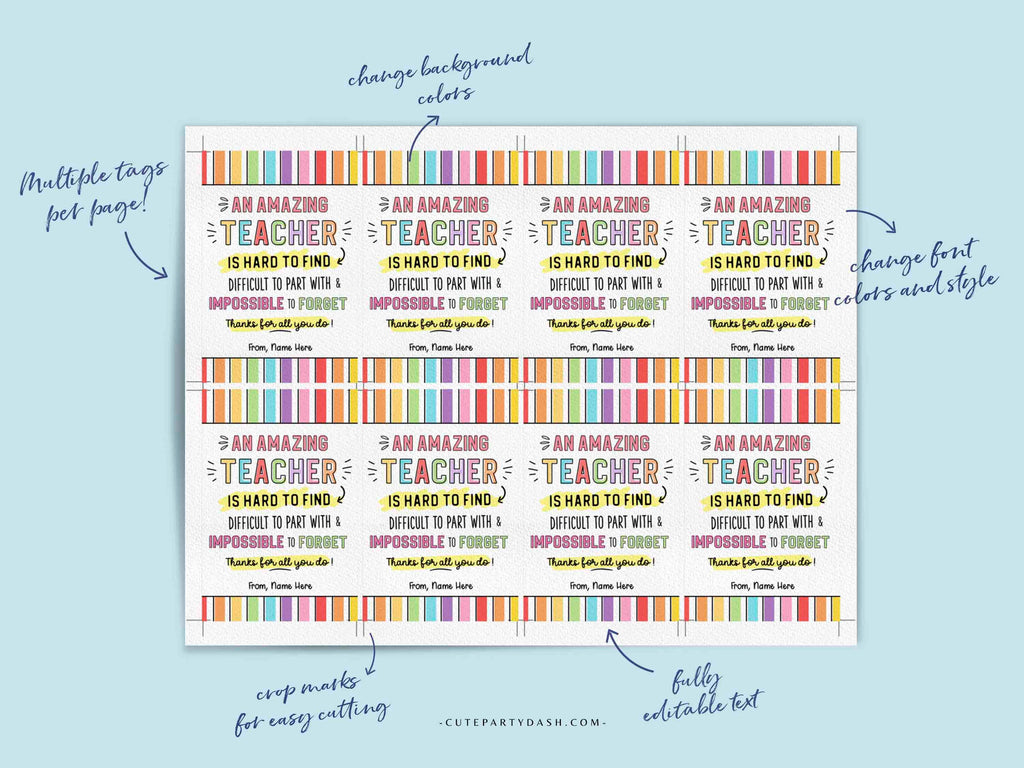 change background
colors
Multiple tags
per page!
AN AMAZING AN AMAZING AN AMAZING AN AMAZING
TEACHER TEACHER TEACHER TEACHER
IS HARD TO FIND IS HARD TO FIND IS HARD TO FIND IS HARD TO FIND
DIFFICULT TO PART WITH & DIFFICULT TO PART WITH & DIFFICULT TO PART WITH & DIFFICULT TO PART WITH &
IMPOSSIBLE TO FORGET IMPOSSIBLE TO FORGET IMPOSSIBLE TO FORGET IMPOSSIBLE TO FORGET
Thanks for all you do! Thanks for all you do! Thanks for all you do! Thanks for all you do!
From, Name Here From, Name Here From, Name Here From, Name Here
change font
colors and style
AN AMAZING AN AMAZING AN AMAZING AN AMAZING
TEACHER TEACHER TEACHER TEACHER
IS HARD TO FIND IS HARD TO FIND IS HARD TO FIND IS HARD TO FIND
DIFFICULT TO PART WITH & DIFFICULT TO PART WITH & DIFFICULT TO PART WITH & DIFFICULT TO PART WITH &
IMPOSSIBLE TO FORGET IMPOSSIBLE TO FORGET IMPOSSIBLE TO FORGET IMPOSSIBLE TO FORGET
Thanks for all you do! Thanks for all you do! Thanks for all you do! Thanks for all you do!
From, Name Here From, Name Here From, Name Here From, Name Here
crop marks
for easy cutting
fully
editable text
-CUTEPARTYDASH.COM-